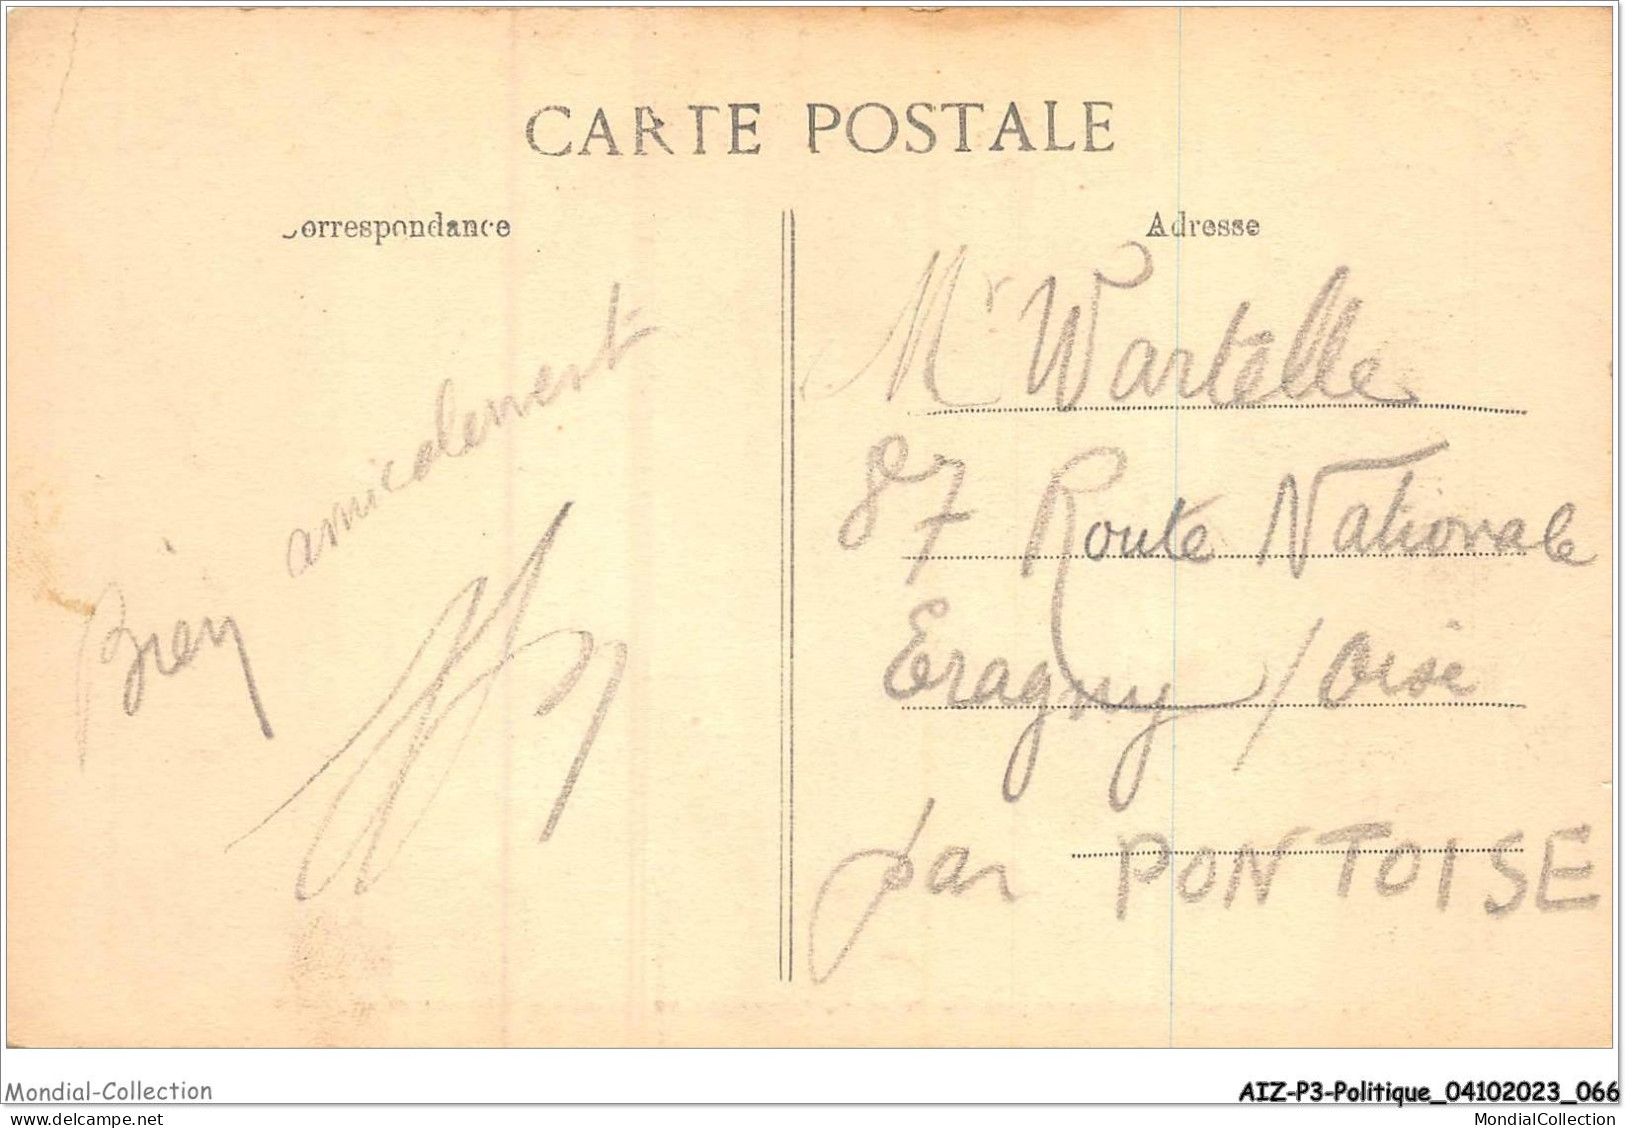 CARTE POSTALE
orrespondance
Adresse
Bien amicalement
Mr Wartelle
87 Route Nationale
Eragny / Oise
par PONTOISE
Mondial-Collection
AIZ-P3-Politique_04102023_066
MondialCollection